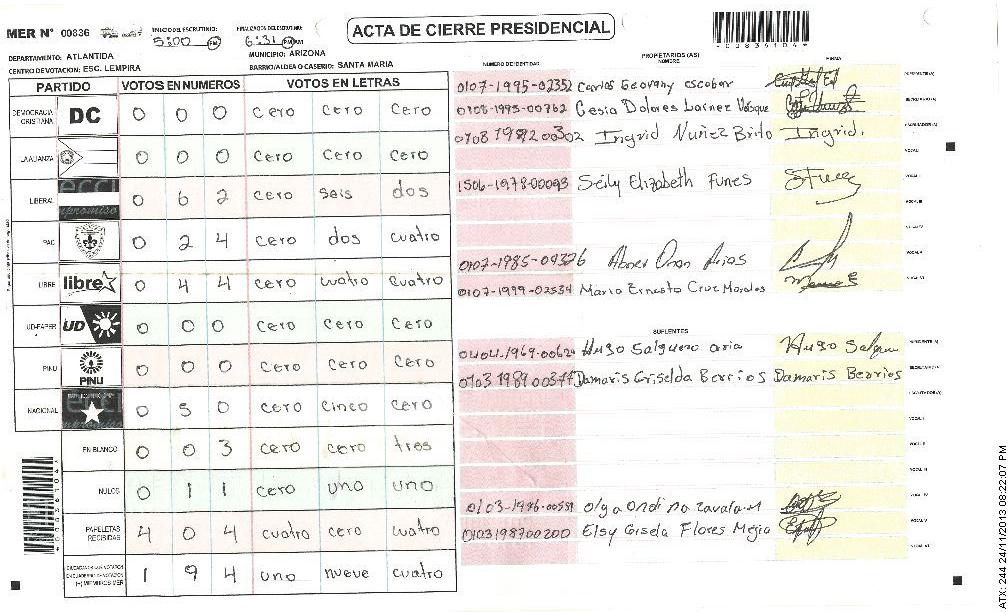 MER N° 00836
INICIO DEL ESCRUTINIO: 5:00 PM
FINALIZACION DEL ESCRUTINIO: 6:31 PM AM
ACTA DE CIERRE PRESIDENCIAL
*00836104*
DEPARTAMENTO: ATLANTIDA
MUNICIPIO: ARIZONA
CENTRO DE VOTACION: ESC. LEMPIRA
BARRIO/ALDEA O CASERIO: SANTA MARIA
PARTIDO VOTOS EN NUMEROS VOTOS EN LETRAS
DEMOCRACIA CRISTIANA DC 0 0 0 cero cero cero
LA ALIANZA 0 0 0 cero cero cero
LIBERAL 0 6 2 cero seis dos
PAC 0 2 4 cero dos cuatro
LIBRE libre 0 4 4 cero cuatro cuatro
UD-FAPER UD 0 0 0 cero cero cero
PINU PINU 0 0 0 cero cero cero
NACIONAL 0 5 0 cero cinco cero
EN BLANCO 0 0 3 cero cero tres
NULOS 0 1 1 cero uno uno
PAPELETAS RECIBIDAS 4 0 4 cuatro cero cuatro
(+) MIEMBROS MER 1 9 4 uno nueve cuatro
PROPIETARIOS (AS)
NUMERO DE IDENTIDAD NOMBRE FIRMA
0107-1995-02352 Carlos Geovany escobar
0108-1995-00762 Cesia Dolores
0708 1982 00302 Ingrid Nuñez Brito Ingrid.
1506-1978-00093 Seily Elizabeth Funes
0107-1985-09326
0107-1999-02534 Mario Ernesto Cruz Morales
SUPLENTES
0404-1969-00624 Hugo Salguero Hugo
0103 1989 00377 Damaris Griselda Berrios Damaris Berrios
0103-1986-00559 Olga Ondina Zavala M
0103198700200 Elsy Gisela Flores Mejia
ATX: 244 24/11/2013 08:22:07 PM